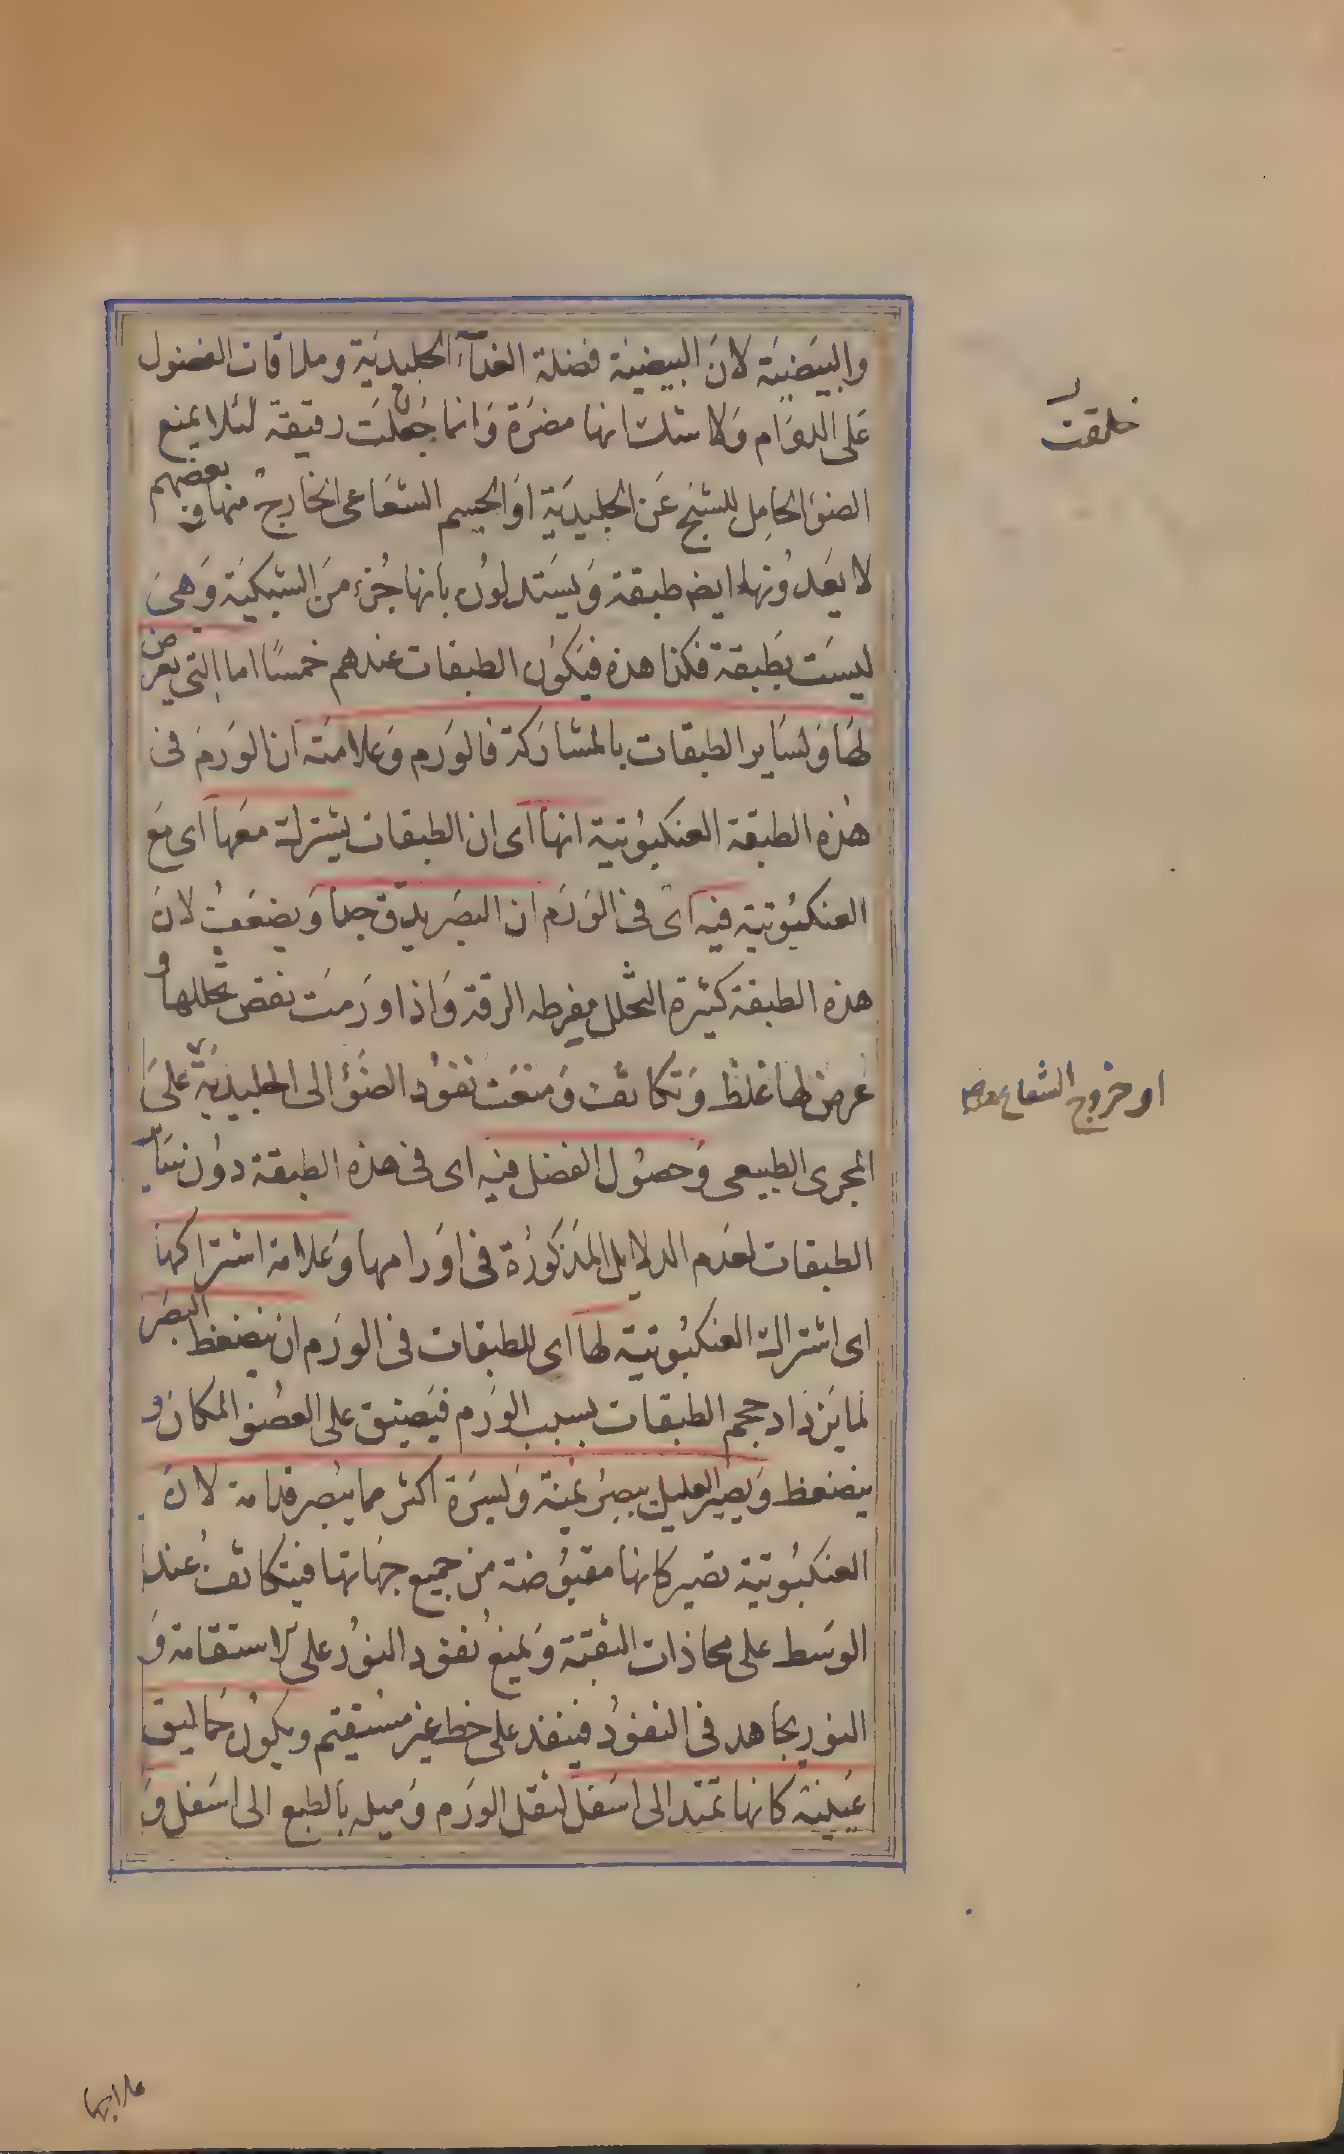 والبيضية لان البيضية فضلة الغذآء الجليدية وملاقات الفضول
على الدوام ولا شك انها مضرة وانما جعلت رقيقة لئلا يمنع
الضؤ الحامل للشبح عن الجليدية او الجسم الشعاعى الخارج منها وبعضهم
لا يعدونها ايض طبقة ويستدلون بانها جزء من الشبكية وهى
ليست بطبقة فكذا هذه فيكون الطبقات عندهم خمسا اما التى يعرض
لها ولساير الطبقات بالمشاركة فالورم وعلامته ان الورم فى
هذه الطبقة العنكبوتية انها اى ان الطبقات يشترك معها اى مع
العنكبوتية فيه اى فى الورم ان البصر يدق جدا ويضعف لان
هذه الطبقة كثيرة التخلل مفرطه الرقة واذا ورمت نقص تخللها و
عرض لها غلظ وتكاثف ومنعت نفوذ الضؤ الى الجليدية على
المجرى الطبيعى وحصول الفضل فيه اى فى هذه الطبقة دون ساير
الطبقات لعدم الدلايل المذكورة فى اورامها وعلامة اشتراكها
اى اشتراك العنكبوتية لها اى للطبقات فى الورم ان ينضغط البصر
لما يزداد حجم الطبقات بسبب الورم فيضيق على العضو المكان و
ينضغط ويصير العليل يبصر يمنة ويسرة اكثر مما يبصر قدامة لان
العنكبوتية تصير كانها مقبوضة من جميع جهاتها فيتكاثف عند
الوسط على محاذات الثقبة ويمنع نفوذ النور على الاستقامة و
النور يجاهد فى النفوذ فينفذ على خط غير مستقيم ويكون حماليق
عينيه كانها تمتد الى اسفل لثقل الورم وميله بالطبع الى اسفل و
خلقت
او خروج الشعاع
علاجها